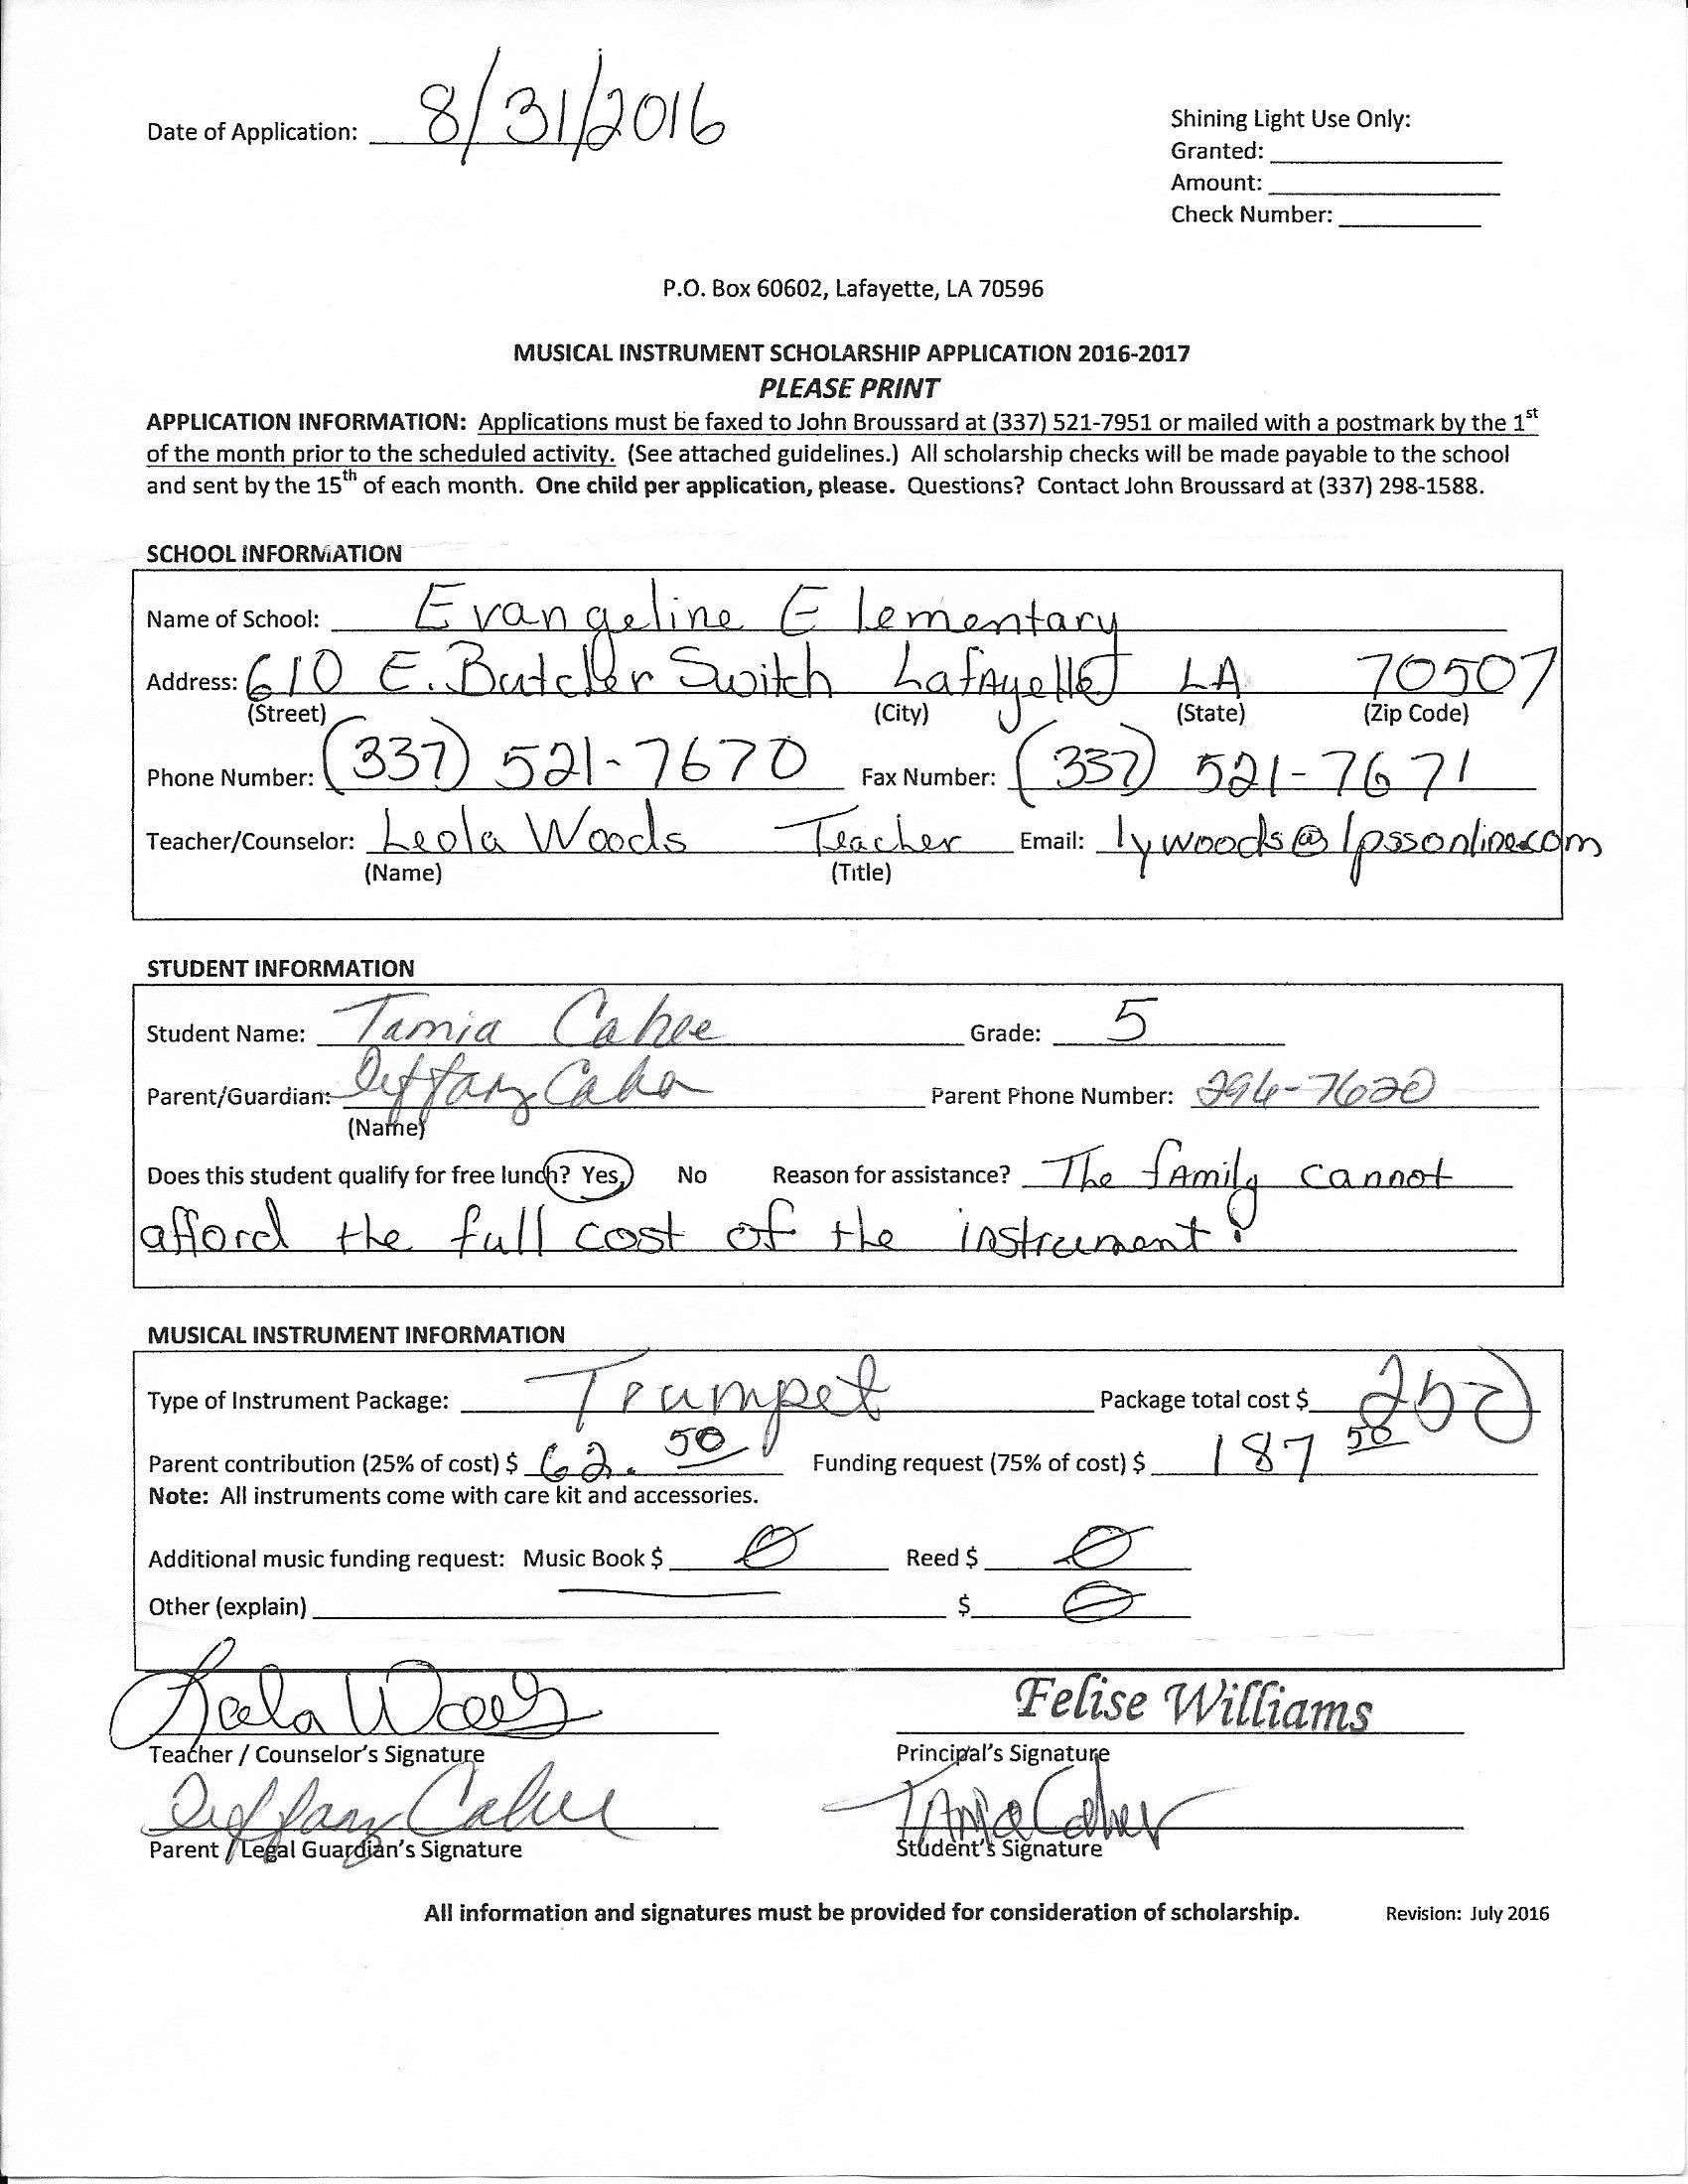 Date of Application: 8/31/2016
Shining Light Use Only:
Granted:
Amount:
Check Number:
P.O. Box 60602, Lafayette, LA 70596
MUSICAL INSTRUMENT SCHOLARSHIP APPLICATION 2016-2017
PLEASE PRINT
APPLICATION INFORMATION: Applications must be faxed to John Broussard at (337) 521-7951 or mailed with a postmark by the 1st
of the month prior to the scheduled activity. (See attached guidelines.) All scholarship checks will be made payable to the school
and sent by the 15th of each month. One child per application, please. Questions? Contact John Broussard at (337) 298-1588.
SCHOOL INFORMATION
Name of School: Evangeline Elementary
Address: 610 E. Butcher Switch Lafayette LA 70507
(Street) (City) (State) (Zip Code)
Phone Number: (337) 521-7670 Fax Number: (337) 521-7671
Teacher/Counselor: Leola Woods Teacher Email: lywoods@lpssonline.com
(Name) (Title)
STUDENT INFORMATION
Student Name: Tamia Cahee Grade: 5
Parent/Guardian: Parent Phone Number: 296-7620
(Name)
Does this student qualify for free lunch? Yes, No Reason for assistance? The family cannot
afford the full cost of the instrument.
MUSICAL INSTRUMENT INFORMATION
Type of Instrument Package: Trumpet Package total cost $ 250
Parent contribution (25% of cost) $ 62.50 Funding request (75% of cost) $ 187 50
Note: All instruments come with care kit and accessories.
Additional music funding request: Music Book $ 0 Reed $ 0
Other (explain) $ 0
Leola Woods Felise Williams
Teacher / Counselor's Signature Principal's Signature
Parent / Legal Guardian's Signature Student's Signature
All information and signatures must be provided for consideration of scholarship. Revision: July 2016